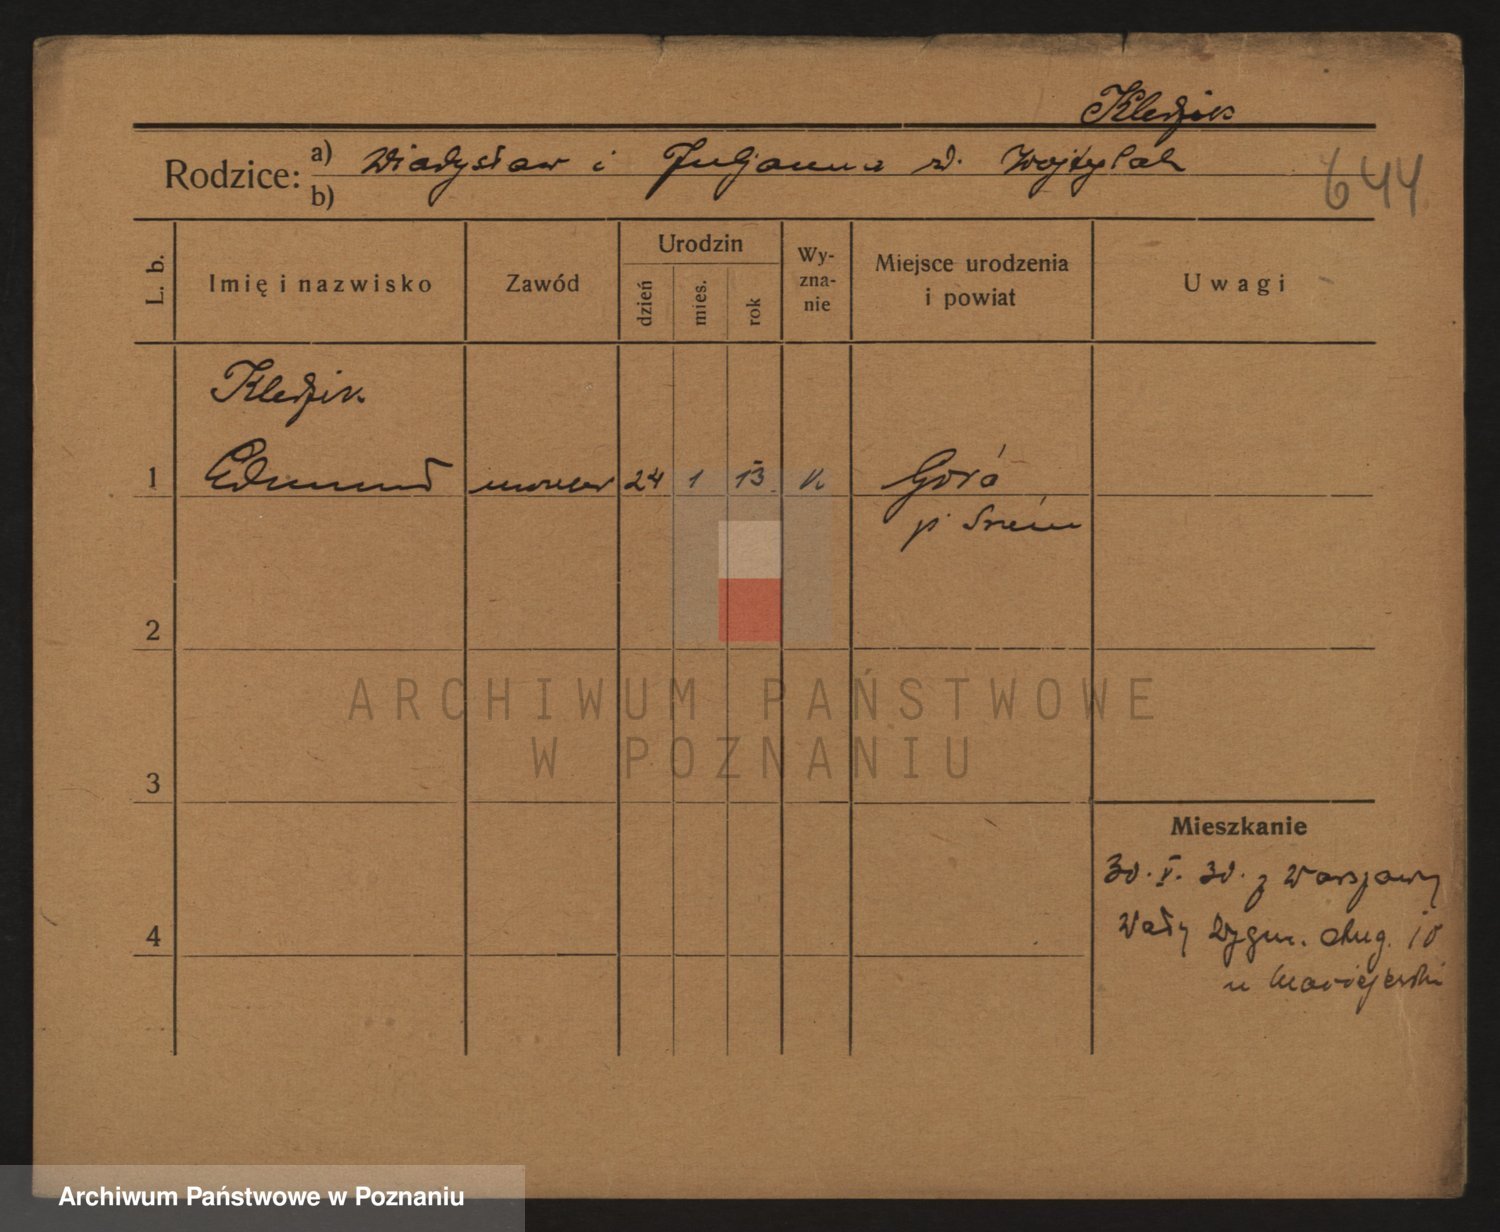 Kledzik
Rodzice: a) Władysław i Juljanna z d. Wojtylak
b)
644
L. b.
Imię i nazwisko
Zawód
Urodzin
dzień
mies.
rok
Wy-
zna-
nie
Miejsce urodzenia
i powiat
Uwagi
Kledzik
1 Edmund 24 1 13 k Góra
p. Śrem
2
ARCHIWUM PAŃSTWOWE
W POZNANIU
3
Mieszkanie
30. V. 30. z Warszawy
4 Wały Zygm. Aug. 10
u Maciejewski
Archiwum Państwowe w Poznaniu